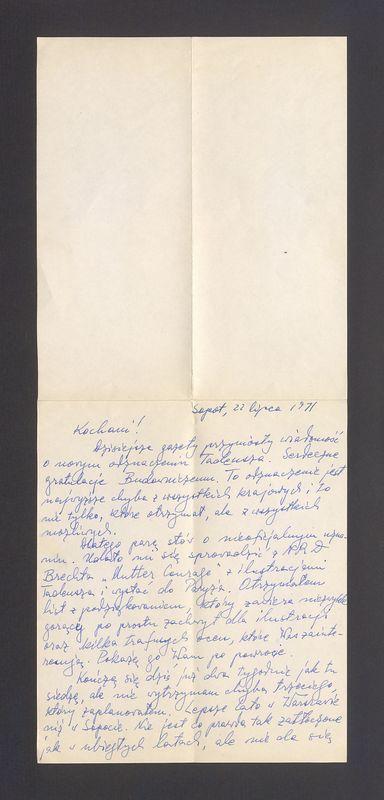 Sopot, 22 lipca 1971
Kochani!
Dzisiejsze gazety przyniosły wiadomość
o nowym odznaczeniu Tadeusza. Serdeczne
gratulacje Budowniczemu. To odznaczenie jest
najwyższe chyba z wszystkich krajowych i to
nie tylko, które otrzymał, ale z wszystkich
możliwych.
Dlatego parę słów o nieoficjalnym uzna-
niu. Udało mi się sprowadzić z N.R.D
Brechta „Mutter Courage" z ilustracjami
Tadeusza i wysłać do Paryża. Otrzymałem
list z podziękowaniem, który zawiera niezwykle
gorący po prostu zachwyt dla ilustracji
oraz kilka trafnych ocen, które Was zainte-
resują. Pokażę go Wam po powrocie.
Kończą się dziś już dwa tygodnie jak tu
siedzę, ale nie wytrzymam chyba trzeciego,
który zaplanowałem. Lepsze lato w Warszawie
niż w Sopocie. Nie jest co prawda tak zatłoczone
jak w ubiegłych latach, ale nie da się